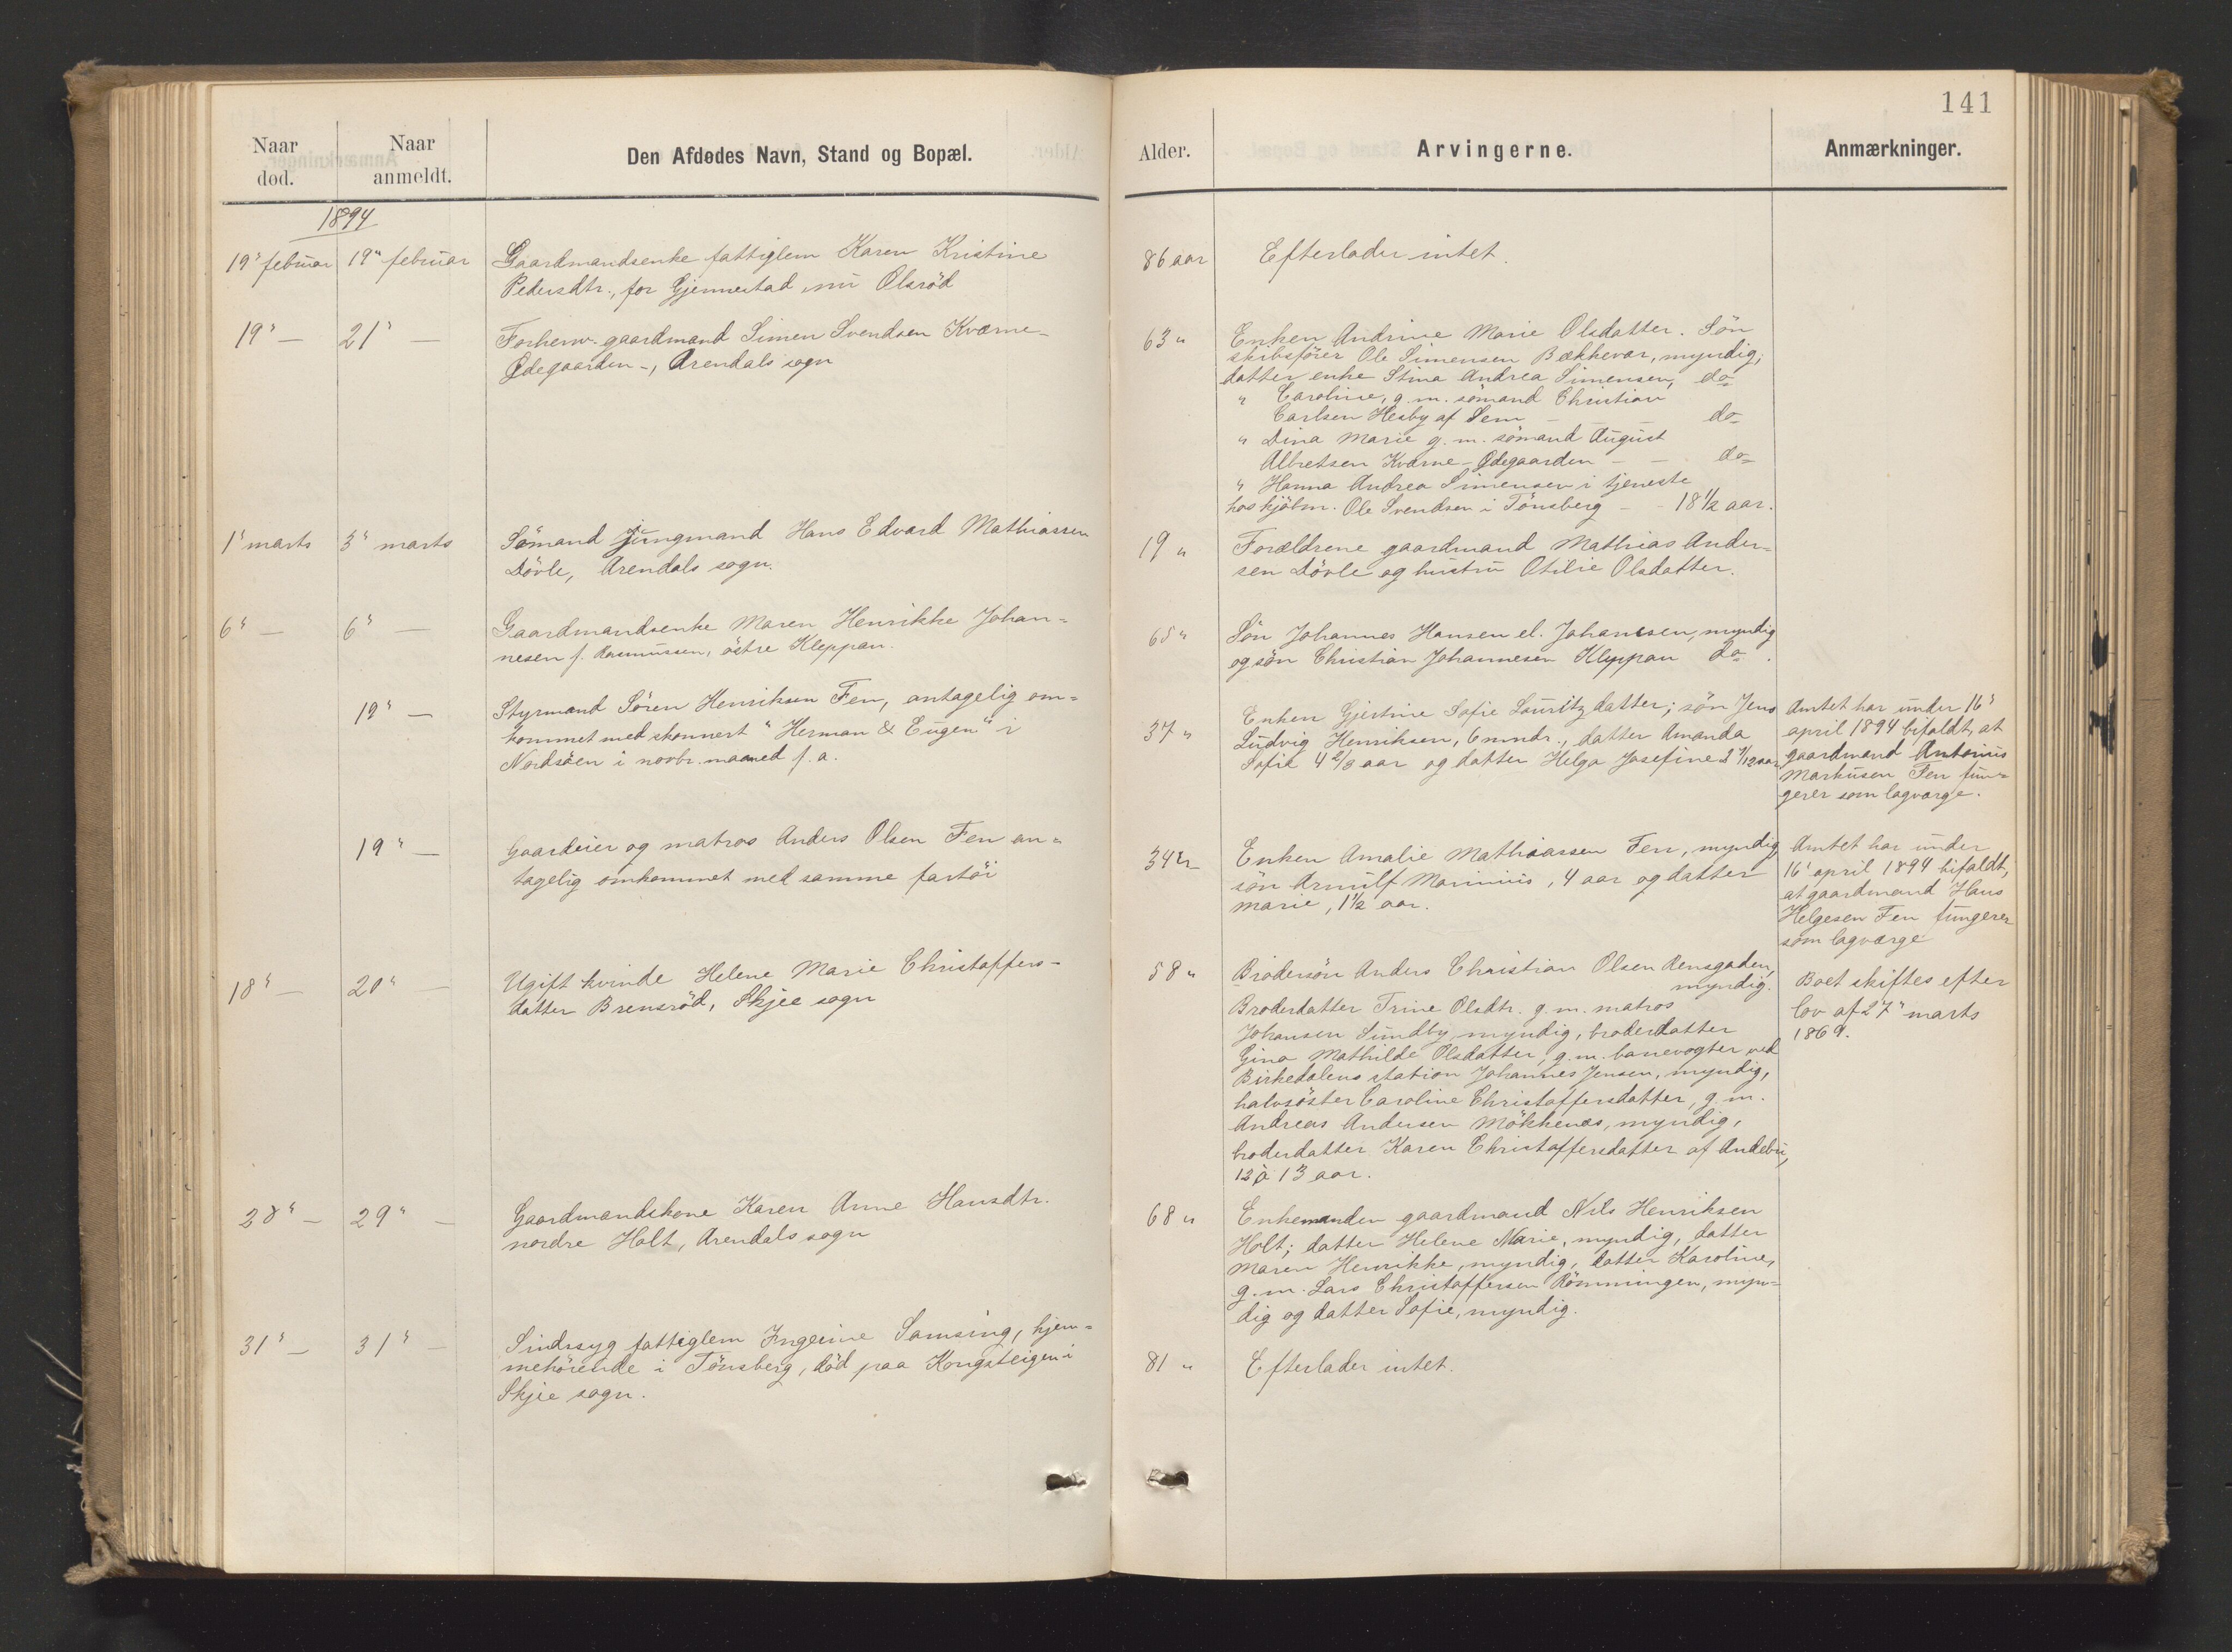 141
Naar død.
Naar anmeldt.
Den Afdødes Navn, Stand og Bopæl.
Alder.
Arvingerne.
Anmærkninger.
1894
19" februar
19" februar
Gaardmandsenke fattiglem Karen Kristine
Pedersdtr., før Gjennestad, nu Olsröd
86 aar
Efterlader intet.
19" —
21" —
Forhenv. gaardmand Simen Svendsen Kværne-
Ødegaarden -, Arendals sogn
63 "
Enken Andrine Marie Olsdatter. Sön
skibsförer Ole Simensen Bækkevar, myndig;
datter enke Stina Andrea Simensen, do
" Caroline, g. m. sömand Christian
Carlsen Hesby af Sem — do
" Dina Marie g. m. sömand August
Albretsen Kværne-Ødegaarden — — do
" Hanna Andrea Simensen i tjeneste
hos kjöbm. Ole Svendsen i Tönsberg — - 18 1/2 aar.
1" marts
3" marts
Sömand jungmand Hans Edvard Mathiassen
Dövle, Arendals sogn.
19 "
Forældrene gaardmand Mathias Ander-
sen Dövle og hustru Otilie Olsdatter.
6" —
6" —
Gaardmandsenke Maren Henrikke Johan-
nesen f. Rasmussen, östre Kleppan.
65 "
Sön Johannes Hansen el. Johansen, myndig
og sön Christian Johannesen Kleppan do.
19" —
Styrmand Sören Henriksen Fen, antagelig om-
kommet med skonnert "Herman & Eugen" i
Nordsöen i novbr. maaned f. a.
37 "
Enken Gjertine Sofie Lauritzdatter; sön Jens
Ludvig Henriksen, 6 mndr., datter Amanda
Sofie 4 2/3 aar og datter Helga Josefine 3 1/12 aar
Amtet har under 16"
april 1894 bifaldt, at
gaardmand Antonius
Markusen Fen fun-
gerer som lagværge.
19" —
Gaardeier og matros Anders Olsen Fen an-
tagelig omkommet med samme fartöi
34 "
Enken Amalie Mathiassen Fen, myndig,
sön Arnulf Marinius, 4 aar og datter
Marie, 1 1/2 aar.
Amtet har under
16" april 1894 bifaldt,
at gaardmand Hans
Helgesen Fen fungerer
som lagværge
18" —
20" —
Ugift kvinde Helene Marie Christoffers-
datter Brensröd, Skjee sogn
58 "
Brodersön Anders Christian Olsen Rensgaden,
myndig.
Broderdatter Trine Olsdtr. g. m. matros
Johansen Sundby, myndig, broderdatter
Gina Mathilde Olsdatter, g. m. banevogter ved
Birkedalens station Johannes Jensen, myndig,
halvsöster Caroline Christoffersdatter, g. m.
Andreas Andersen Mökkenes, myndig,
broderdatter Karen Christoffersdatter af Andebu,
12 à 13 aar.
Boet skiftes efter
lov af 27" marts
1869.
28" —
29" —
Gaardmandskone Karen Anne Hansdtr.
nordre Holt, Arendals sogn
68 "
Enkemanden gaardmand Nils Henriksen
Holt; datter Helene Marie, myndig, datter
Maren Henrikke, myndig, datter Karoline,
g. m. Lars Christoffersen Rönningen, myn-
dig og datter Sofie, myndig.
31" —
31" —
Sindssyg fattiglem Ingerine Samsing, hjem-
mehörende i Tönsberg, död paa Kongsteigen i
Skjee sogn.
81 "
Efterlader intet.